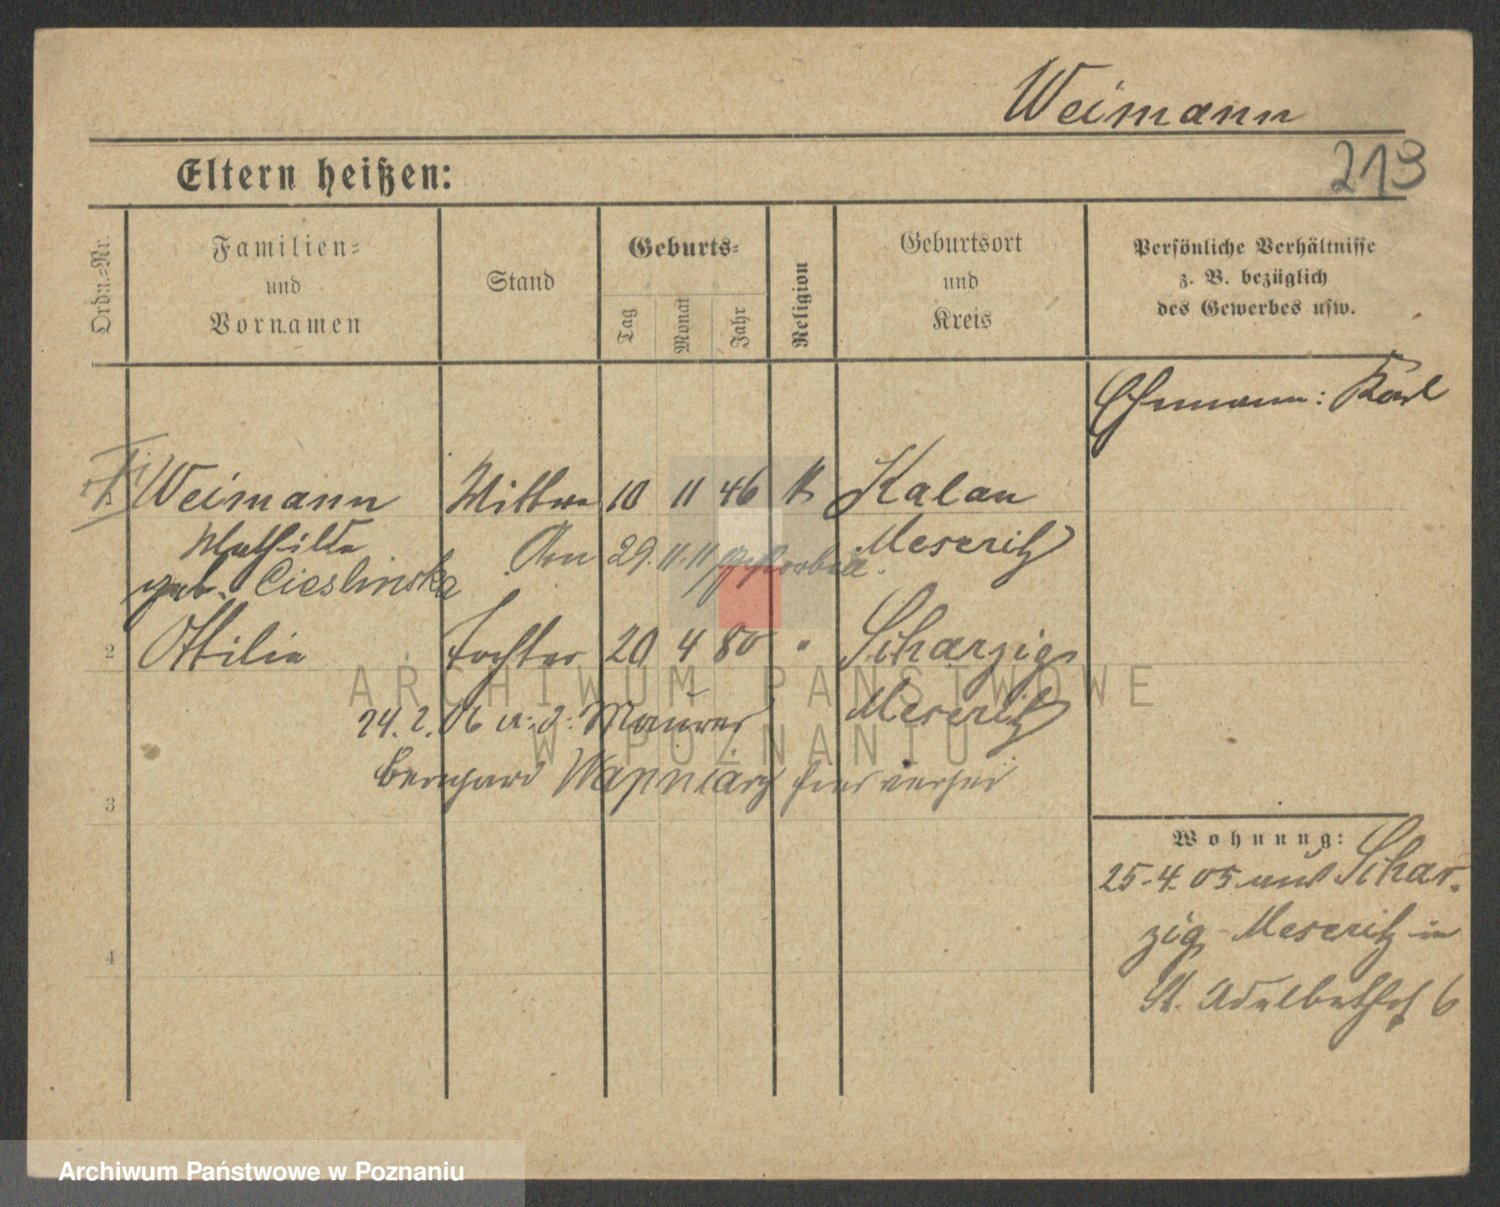 Weimann
213
Eltern heißen:
Ordn.-Nr.
Familien-
und
Vornamen
Stand
Geburts-
Tag
Monat
Jahr
Religion
Geburtsort
und
Kreis
Persönliche Verhältnisse
z. B. bezüglich
des Gewerbes usw.
Ehemann: Karl
Weimann Wittwe 10 11 46 k Kalau
Mathilde Meseritz
Am 29.11.11 gestorben.
geb. Cieslinska
2 Ottilie Tochter 20 4 80 " Scharzig
Meseritz
24.2.06 a. d. Maurer
Bernhard Wapniarz hier verheir
3
Wohnung:
25-4.05 aus Schar-
zig-Meseritz in
St. Adalberthof 6
4
ARCHIWUM PAŃSTWOWE
W POZNANIU
Archiwum Państwowe w Poznaniu